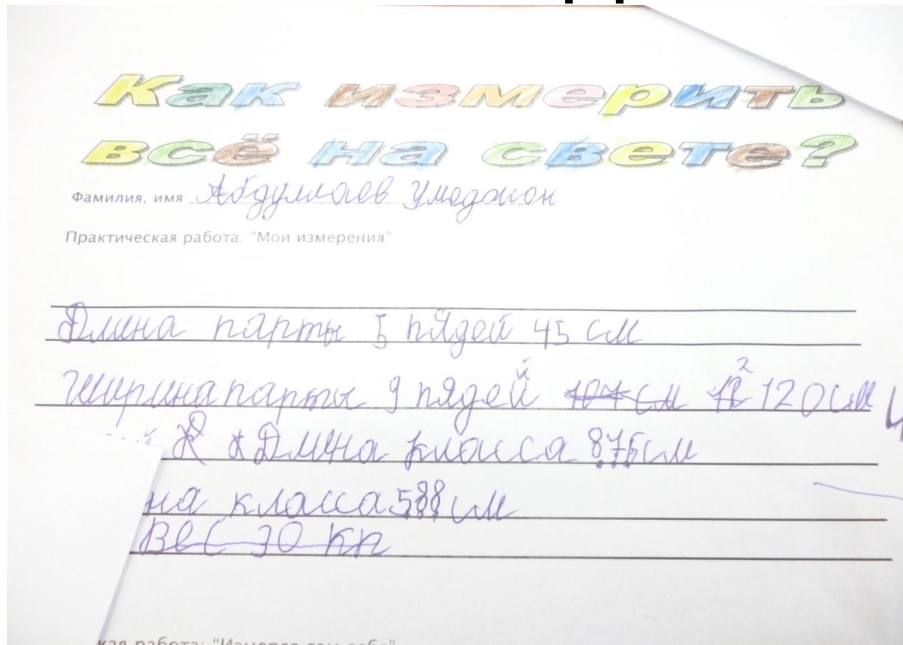 Как измерить
всё на свете?
Фамилия, имя Абдуллаев Умеджон
Практическая работа: "Мои измерения"
Длина парты 5 пядей 45 см
Ширина парты 9 пядей 107 см 12 120 см
Длина класса 875 см
на класса 588 см
Вес 30 кг
кая работа: "Измеряя сам себя"